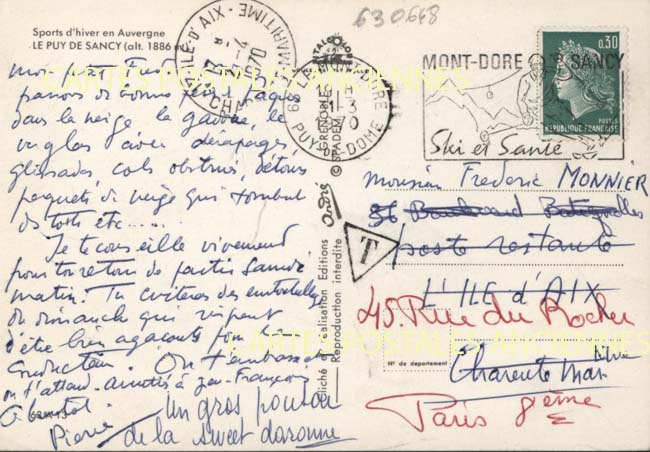 Sports d'hiver en Auvergne
LE PUY DE SANCY (alt. 1886 m)
630648
ILE-D'AIX
CHARENTE MARITIME
-4
1970
LE MONT-DORE
PUY-DE-DOME
-3
MONT-DORE SANCY
Ski et Santé
0,30
POSTES
REPUBLIQUE FRANÇAISE
Mon petit Fred
passons de bonnes
dans la neige la gadoue, le
verglas avec dérapages,
glissades cols obstrués, détours
paquets de neige qui tombent
des toits etc.....
Je te conseille vivement
pour ton retour de partir Samedi
matin. Tu eviteras des embouteillages
du dimanche qui risquent
d'être bien agaçants pour ton
conducteur. On t'embrasse
on t'attend. amitiés à Jean-François
A bientôt.
un gros poutou
Pierre de la sweet daronne
63M 13
Cliché et réalisation Editions André
Reproduction interdite
GRENOBLE
Monsieur Frederic MONNIER
36 Boulevard Batignolles
poste restante
T
L'ILE d'AIX
45. Rue du Rocher
N° de département
Charente Mar
Mme
Paris 8ème
CARTES POSTALES ANCIENNES
CARTES POSTALES ANCIENNES